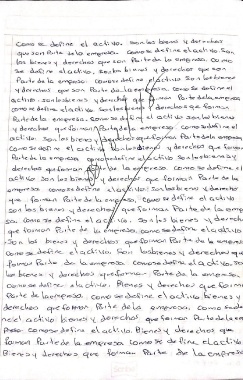 Como se define el activo. Son los bienes y derechos
que son Parte de la empresa. Como se define el activo. Son
los bienes y derechos que son Parte de la empresa. como
se define el activo. son los bienes y derechos que son
Parte de la empresa. como se define el activo son los bienes
y derechos que son Parte de la empresa. como se define el
activo. son los bienes y derechos que forman Parte de la empresa.
como se define el activo son los bienes y derechos que forman
Parte de la empresa. como se define el activo son los bienes
y derechos que forman Parte de la empresa. como se define el
activo. Son los bienes y derechos que forman Parte de la empresa
como se define el activo son los bienes y derechos que forman
Parte de la empresa como se define el activo son los bienes y
derechos que forman Parte de la empresa. Como se define el
activo. Son los bienes y derechos que forman Parte de la
empresa como se define el activo: Son los bienes y derechos
que forman Parte de la empresa, Como se define el activo
son los bienes y derechos que forman Parte de la empresa
como se define el activo. Son los bienes y derechos
que forman Parte de la empresa. como se define el activo
Son los bienes y derechos que forman Parte de la empresa
como se define el activo. Son los bienes y derechos que
forman Parte de la empresa. Como se define el activo. Son
los bienes y derechos que forman Parte de la empresa.
como se define el activo. Bienes y derechos que forman
Parte de la empresa. como se define el activo. bienes y
derechos que forman Parte de la empresa, como se define
el activo. bienes y derechos que forman Parte de la em
presa. como se define el activo. Bienes y derechos que
forman Parte de la empresa como se define el activo.
Bienes y derechos que forman Parte de la empresa